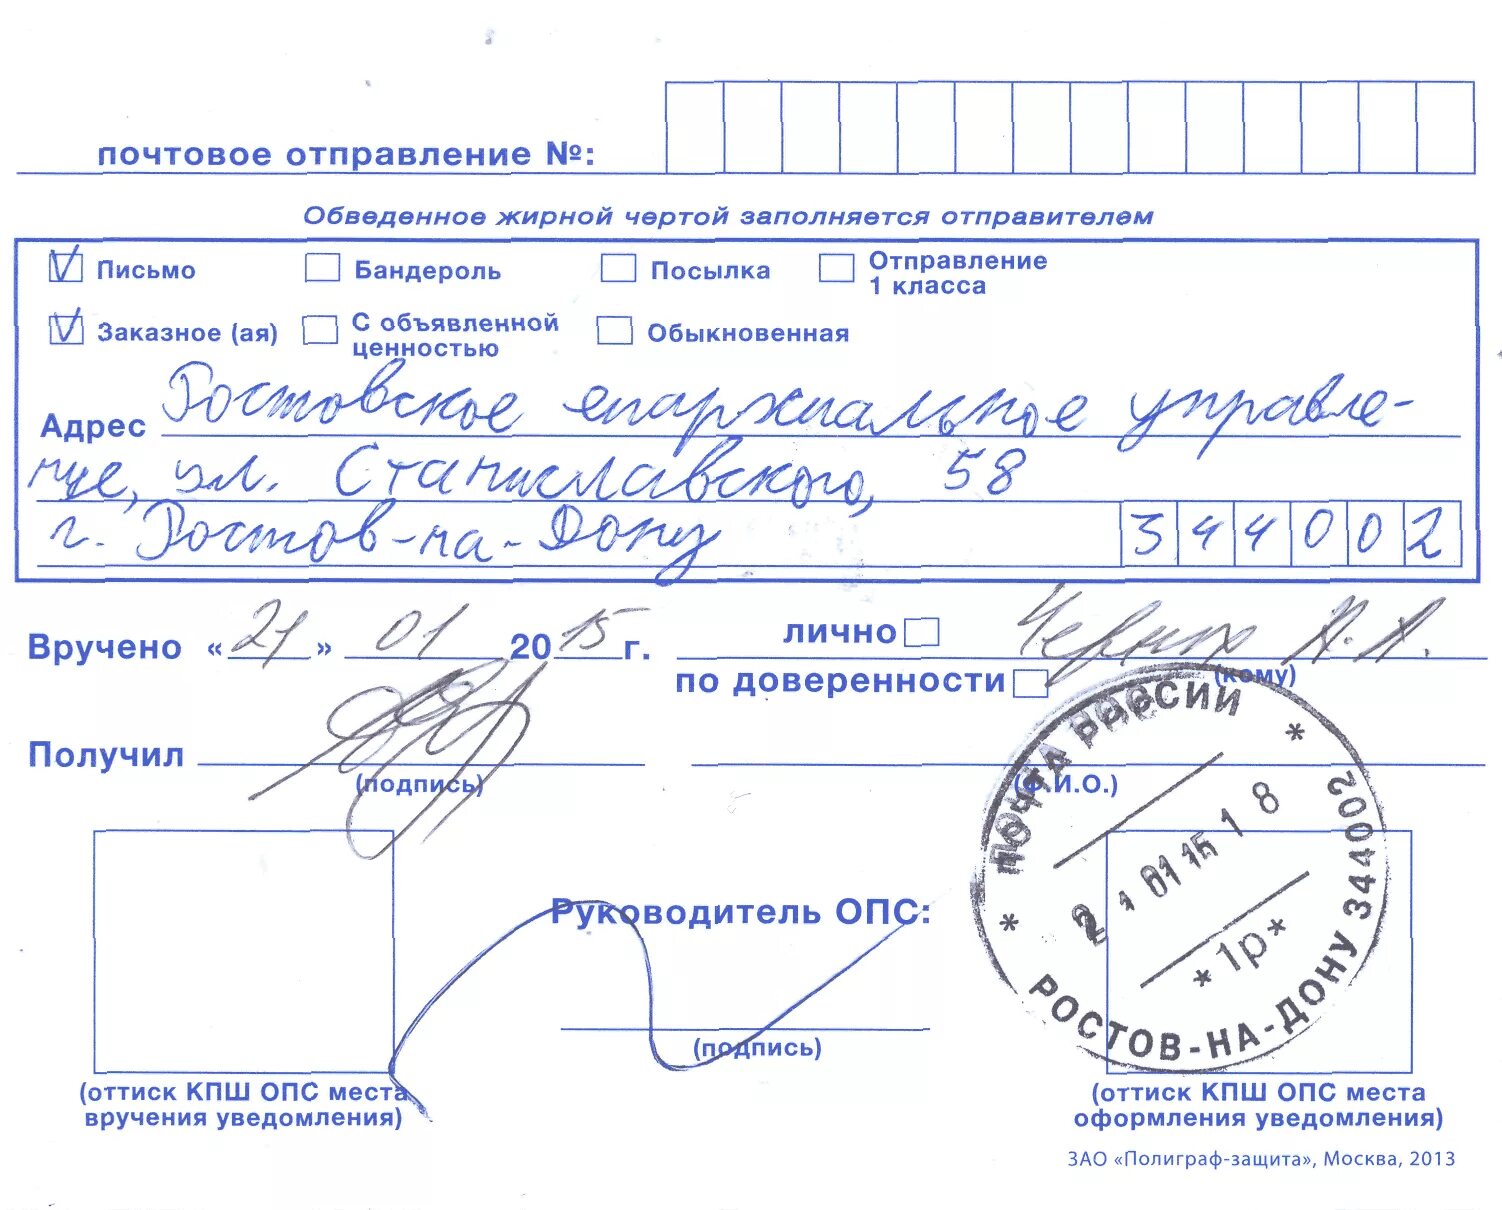 почтовое отправление №:
Обведенное жирной чертой заполняется отправителем
Письмо Бандероль Посылка Отправление 1 класса
Заказное (ая) С объявленной ценностью Обыкновенная
Адрес Ростовское епархиальное управле-
ние, ул. Станиславского, 58
г. Ростов-на-Дону 344002
Вручено «21» 01 2015 г. лично Черных А.А.
по доверенности (кому)
Получил
(подпись) (Ф.И.О.)
ПОЧТА РОССИИ
21 01 15 18
*1р*
РОСТОВ-НА-ДОНУ 344002
Руководитель ОПС:
(подпись)
(оттиск КПШ ОПС места
вручения уведомления)
(оттиск КПШ ОПС места
оформления уведомления)
ЗАО «Полиграф-защита», Москва, 2013